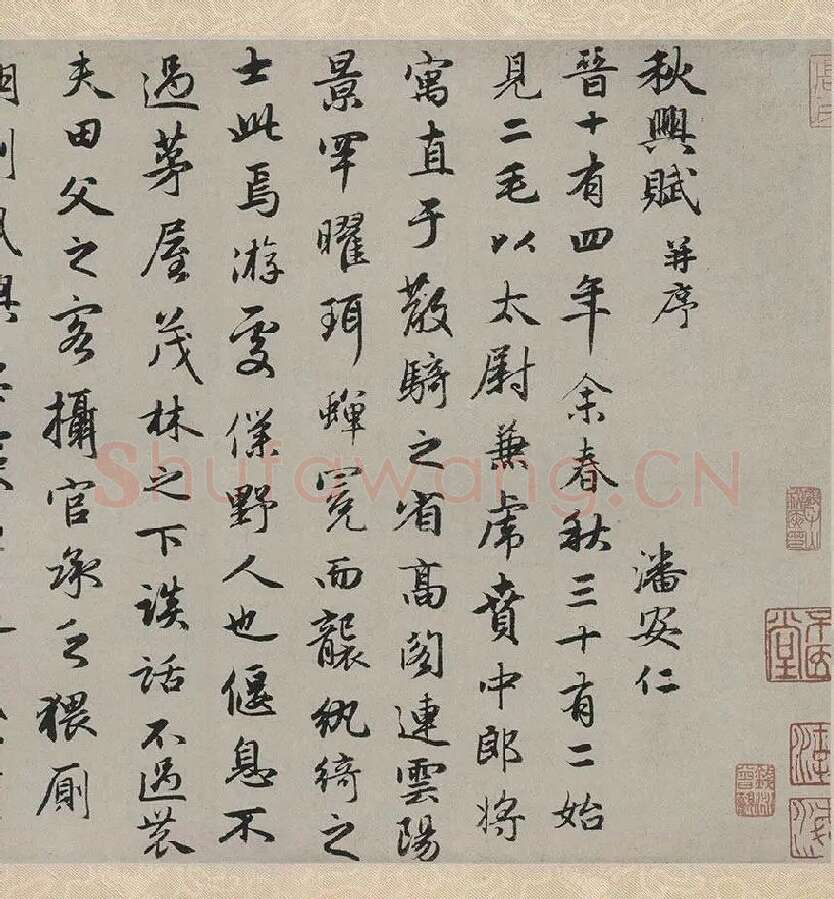 秋興賦 并序 潘安仁
晉十有四年余春秋三十有二始
見二毛以太尉兼虎賁中郎將
寓直于散騎之省高閣連雲陽
景罕曜珥蟬冕而襲紈綺之
士此焉游處僕野人也偃息不
過茅屋茂林之下談話不過農
夫田父之客攝官承乏猥厠
Shufawang.CN